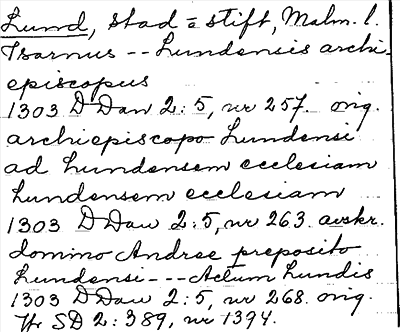 Lund, stad o stift, Malm. l.
Isarnus -- Lundensis archi-
episcopus
1303 DDan 2:5, nr 257. orig.
archiepiscopo Lundensi
ad Lundensem ecclesiam
Lundensem ecclesiam
1303 DDan 2:5, nr 263. avskr.
domino Andree preposito
Lundensi --- Actum Lundis
1303 DDan 2:5, nr 268. orig.
Tr SD 2:389, nr 1394.